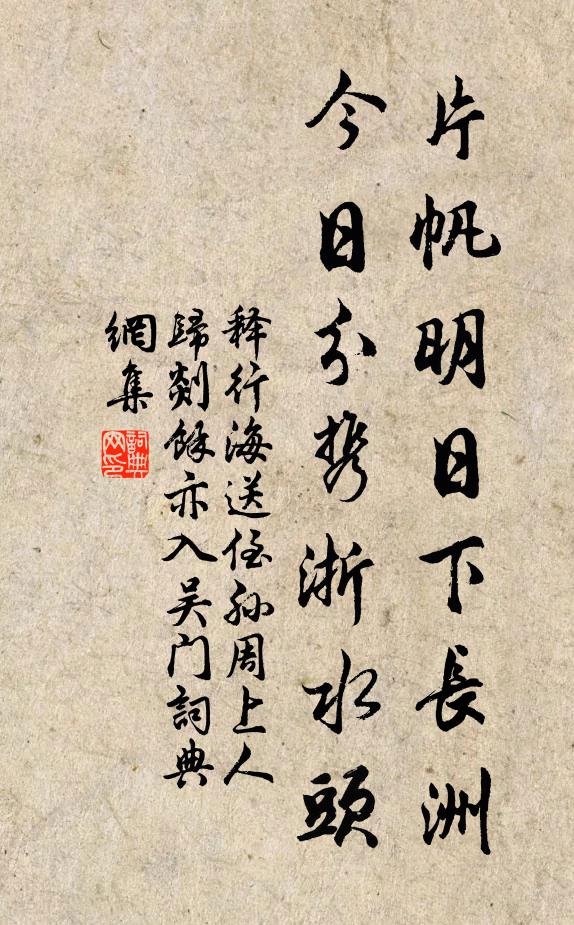 片帆明日下長洲
今日分携浙水頭
释行海送侄孙周上人
歸剡餘亦入吴门詞典
網集
詞典网印